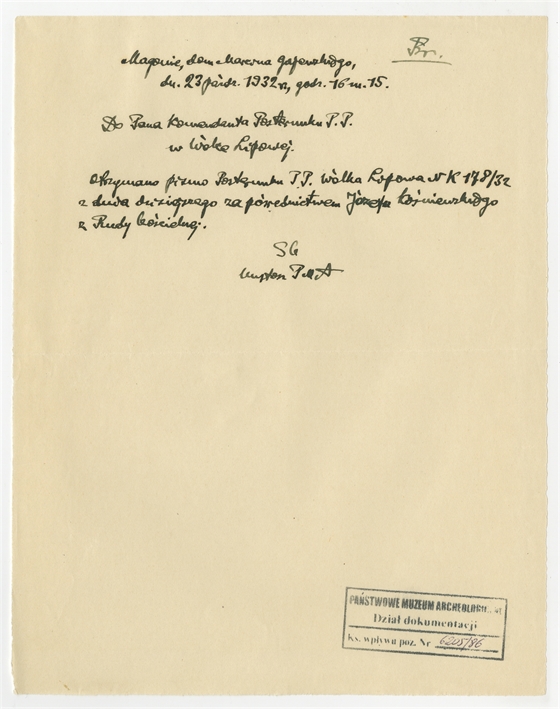 Br.
Magonie, dom Marcina Gajewskiego,
dn. 23 paźdz. 1932 r., godz. 16 m. 15.
Do Pana Komendanta Posterunku P.P.
w Wólce Lipowej.
Otrzymano pismo Posterunku P.P. Wólka Lipowa N K 178/32
z dnia dzisiejszego za pośrednictwem Józefa Kośniewskiego
z Rudy Kościelnej.
SK
P.M.A
PAŃSTWOWE MUZEUM ARCHEOLOGICZNE
Dział dokumentacji
Ks. wpływu poz. Nr 6205/86